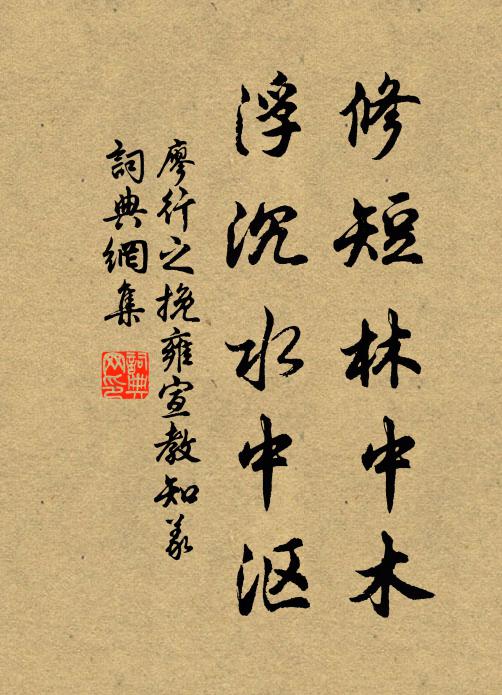 修短林中木
浮沉水中沤
廖行之挽雍宣教知義
詞典網集
詞典网印